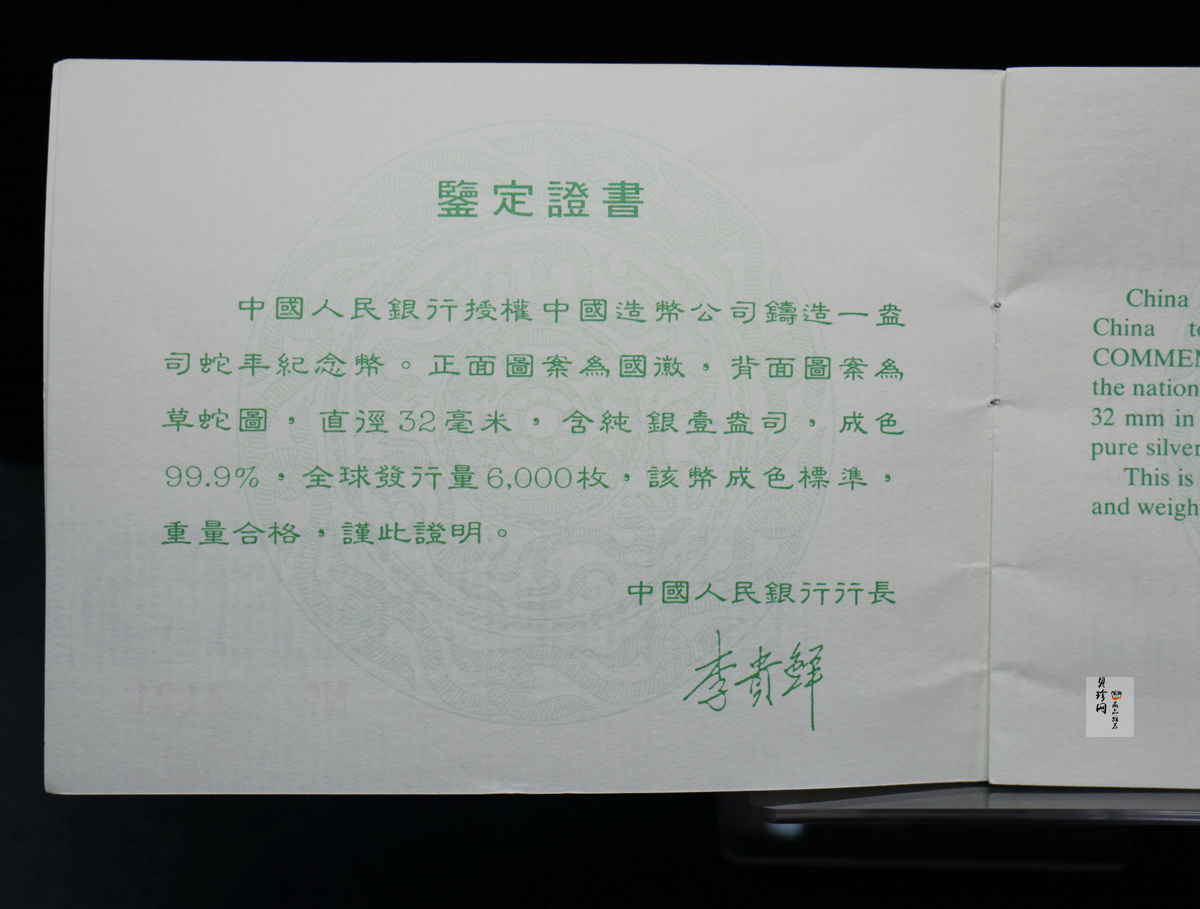 鑒定證書
中國人民銀行授權中國造幣公司鑄造一盎
司蛇年紀念幣。正面圖案為國徽，背面圖案為
草蛇圖，直徑32毫米，含純銀壹盎司，成色
99.9%，全球發行量6,000枚，該幣成色標準，
重量合格，謹此證明。
中國人民銀行行長
李貴鮮
China
China to
COMMEN
the nation
32 mm in
pure silver
This is
and weigh
貝珍网
藏品推荐